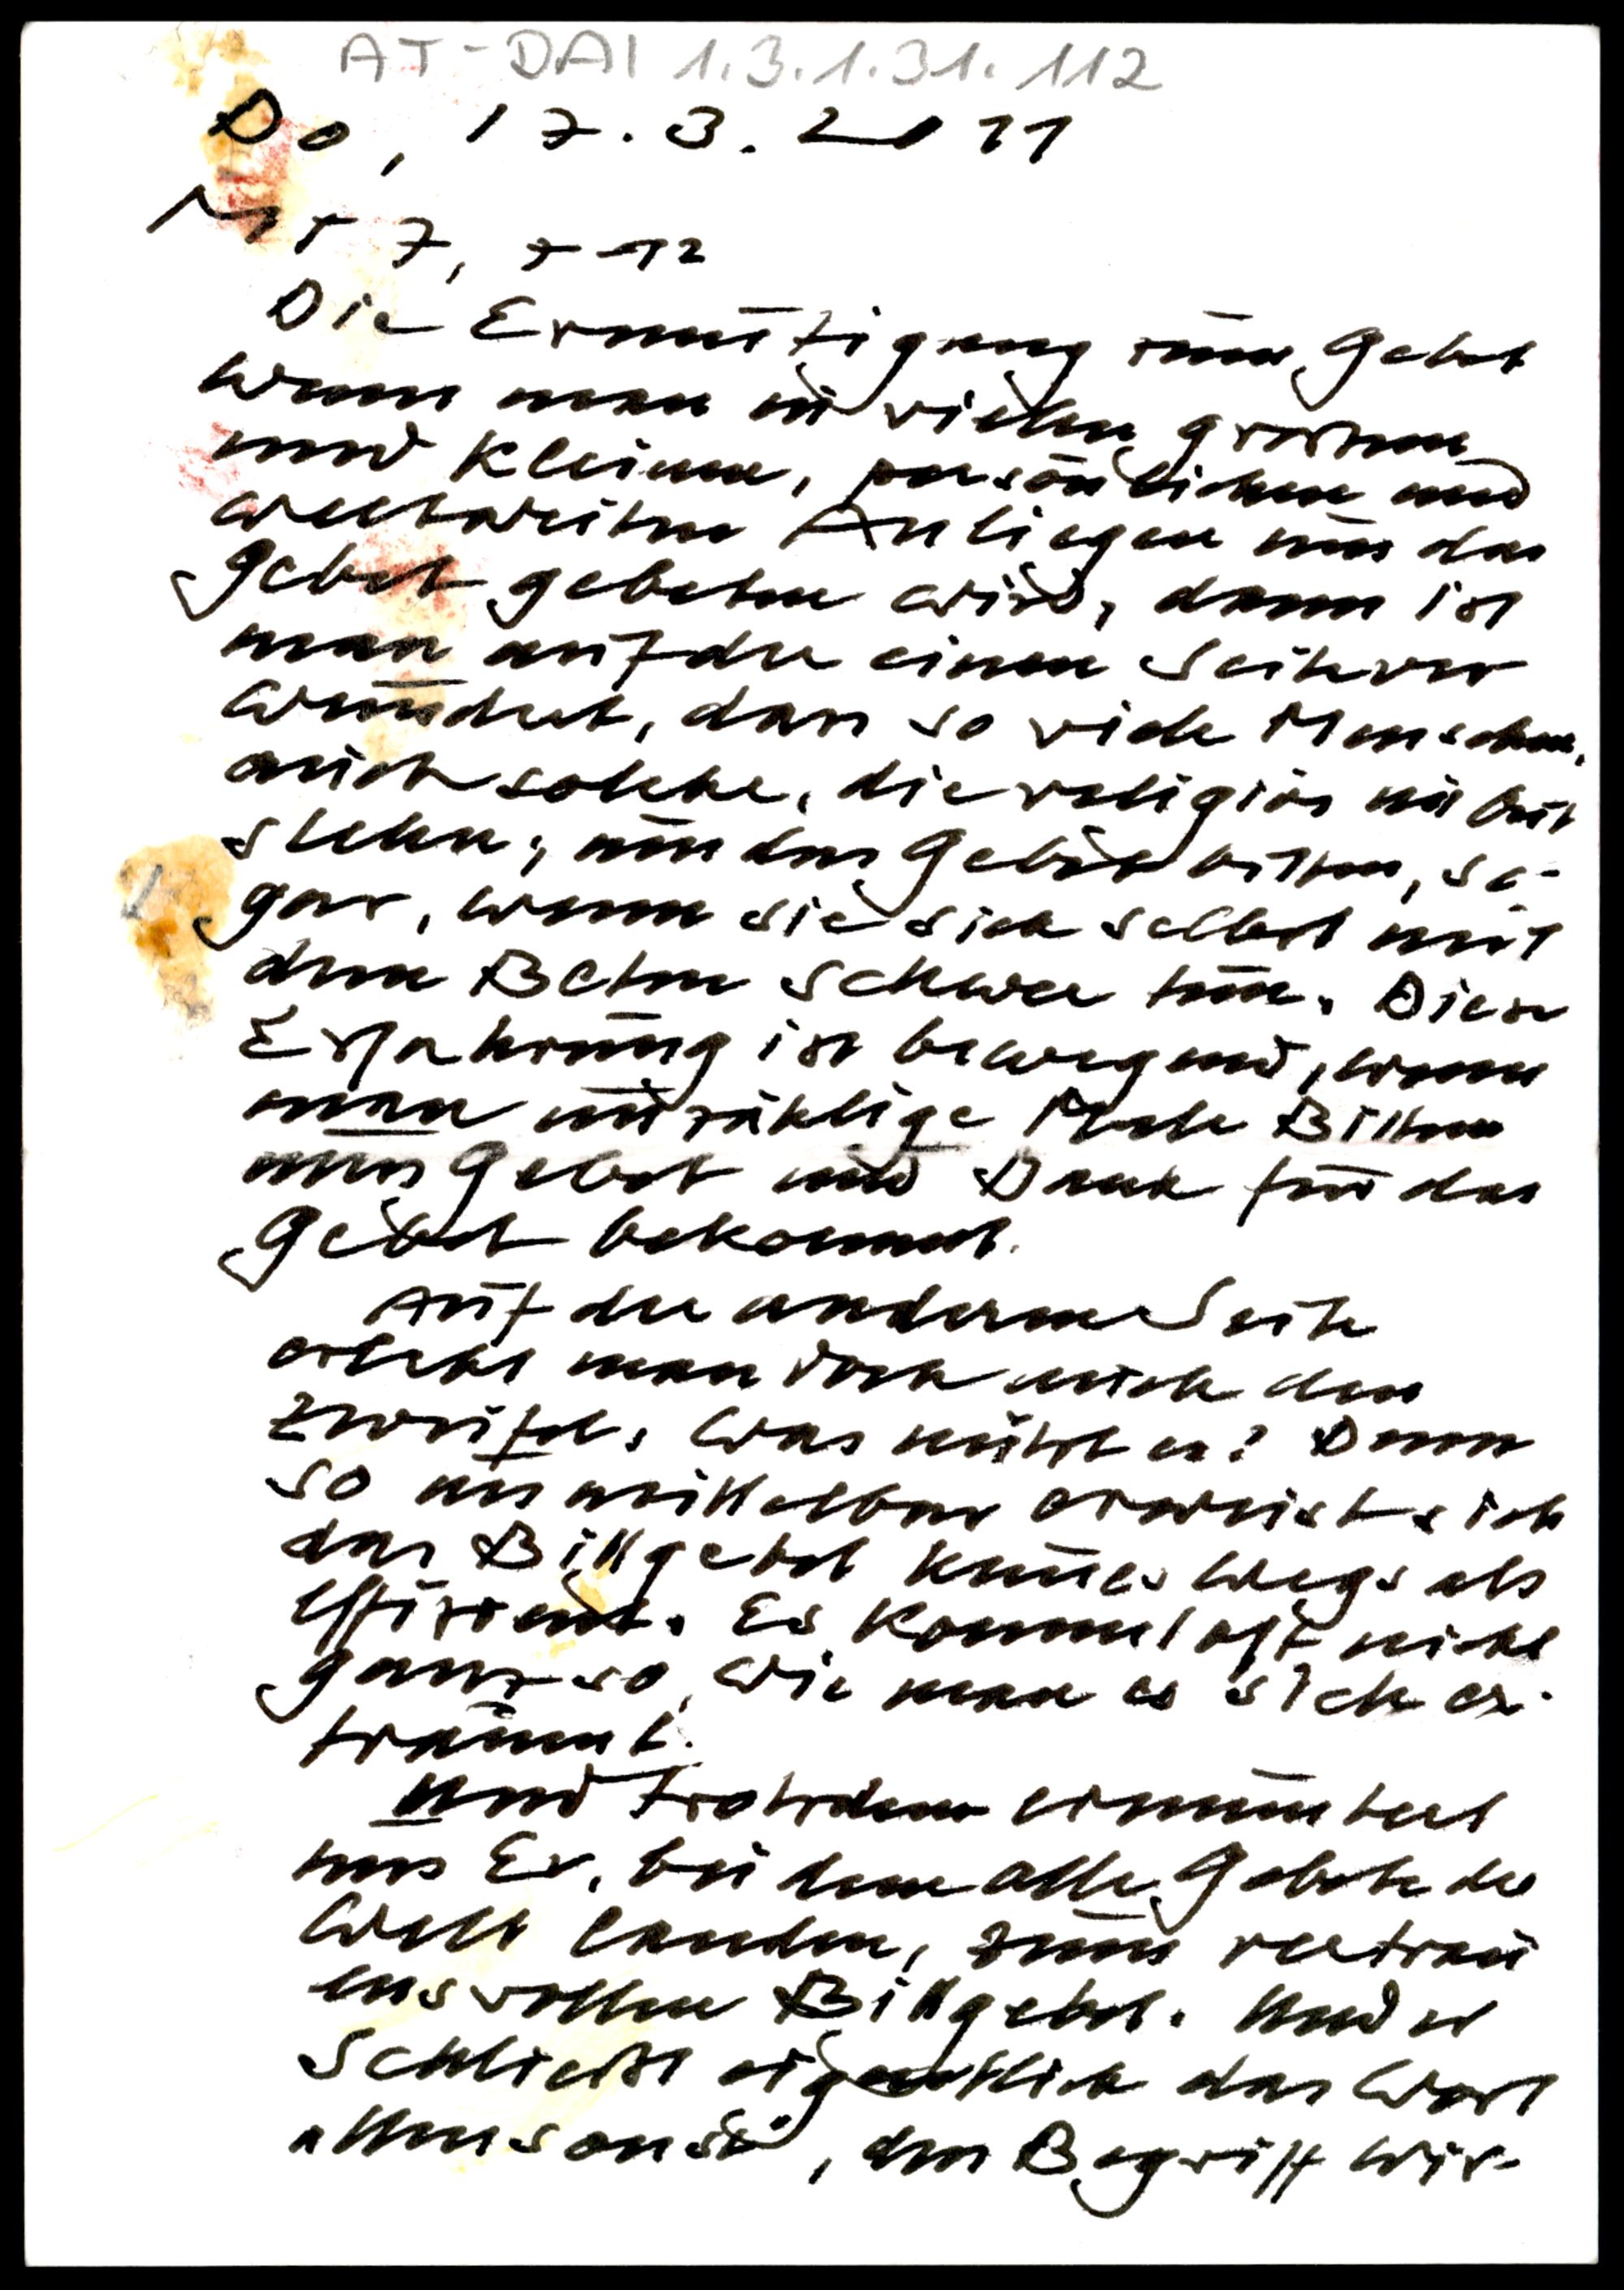 AT-DAI 1.3.1.31.112
Do, 17.3.2011
Mt 7, 7-12
Die Ermutigung zum Gebet
Wenn man in vielen grossen
und kleinen, persönlichen und
weltweiten Anliegen um das
Gebet gebeten wird, dann ist
man auf der einen Seite ver
wundert, dass so viele Menschen,
auch solche, die religiös im Out
stehen, um das Gebet bitten, so-
gar, wenn sie sich selbst mit
dem Beten schwer tun. Diese
Erfahrung ist bewegend, wenn
man unzählige Male Bitten
ums Gebet und Dank für das
Gebet bekommt.
Auf der anderen Seite
erlebt man doch auch den
Zweifel. Was nützt es? Denn
so unmittelbar erweist sich
das Bittgebet keineswegs als
effizient. Es kommt oft nicht
ganz so, wie man es sich er-
träumt.
Und trotzdem ermuntert
uns Er, bei dem alle Gebete der
Welt landen, zum vertrau
ensvollen Bittgebet. Und er
schließt eigentlich das Wort
„Umsonst", den Begriff Wir-